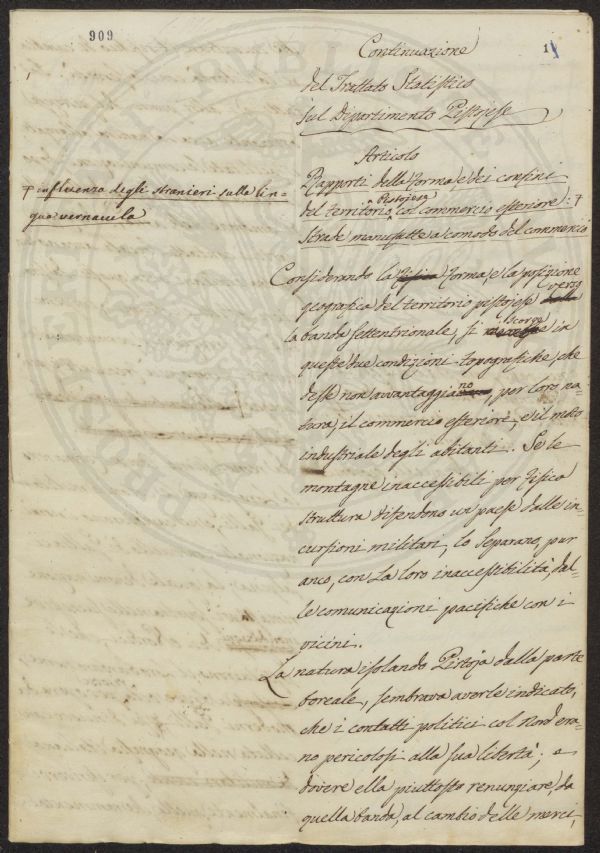 909
1
Continuazione
del Trattato Statistico
sul Dipartimento Pistojese
Articolo
Rapporti della forma, e dei confini
del territorio Pistojese, col commercio esteriore: +
Strade manufatte a comodo del commercio
+ influenza degli stranieri sulla lin-
gua vernacula
Considerando la forma, e la posizione
geografica del territorio pistojese verso
la banda settentrionale, si scorge in
queste due condizioni topografiche, che
desse non avvantaggiano, per loro na-
tura, il commercio esteriore, e il moto
industriale degli abitanti. Se le
montagne inaccessibili per fisica
struttura difendono un paese dalle in-
cursioni militari, lo separano, pur
anco, con la loro inaccessibilità, dal-
le comunicazioni pacifiche con i
vicini.
La natura isolando Pistoja dalla parte
boreale, sembrava averle indicato,
che i contatti politici col Nord era-
no pericolosi alla sua libertà; e
dovere ella piuttosto renunziare, da
quella banda, al cambio delle merci,